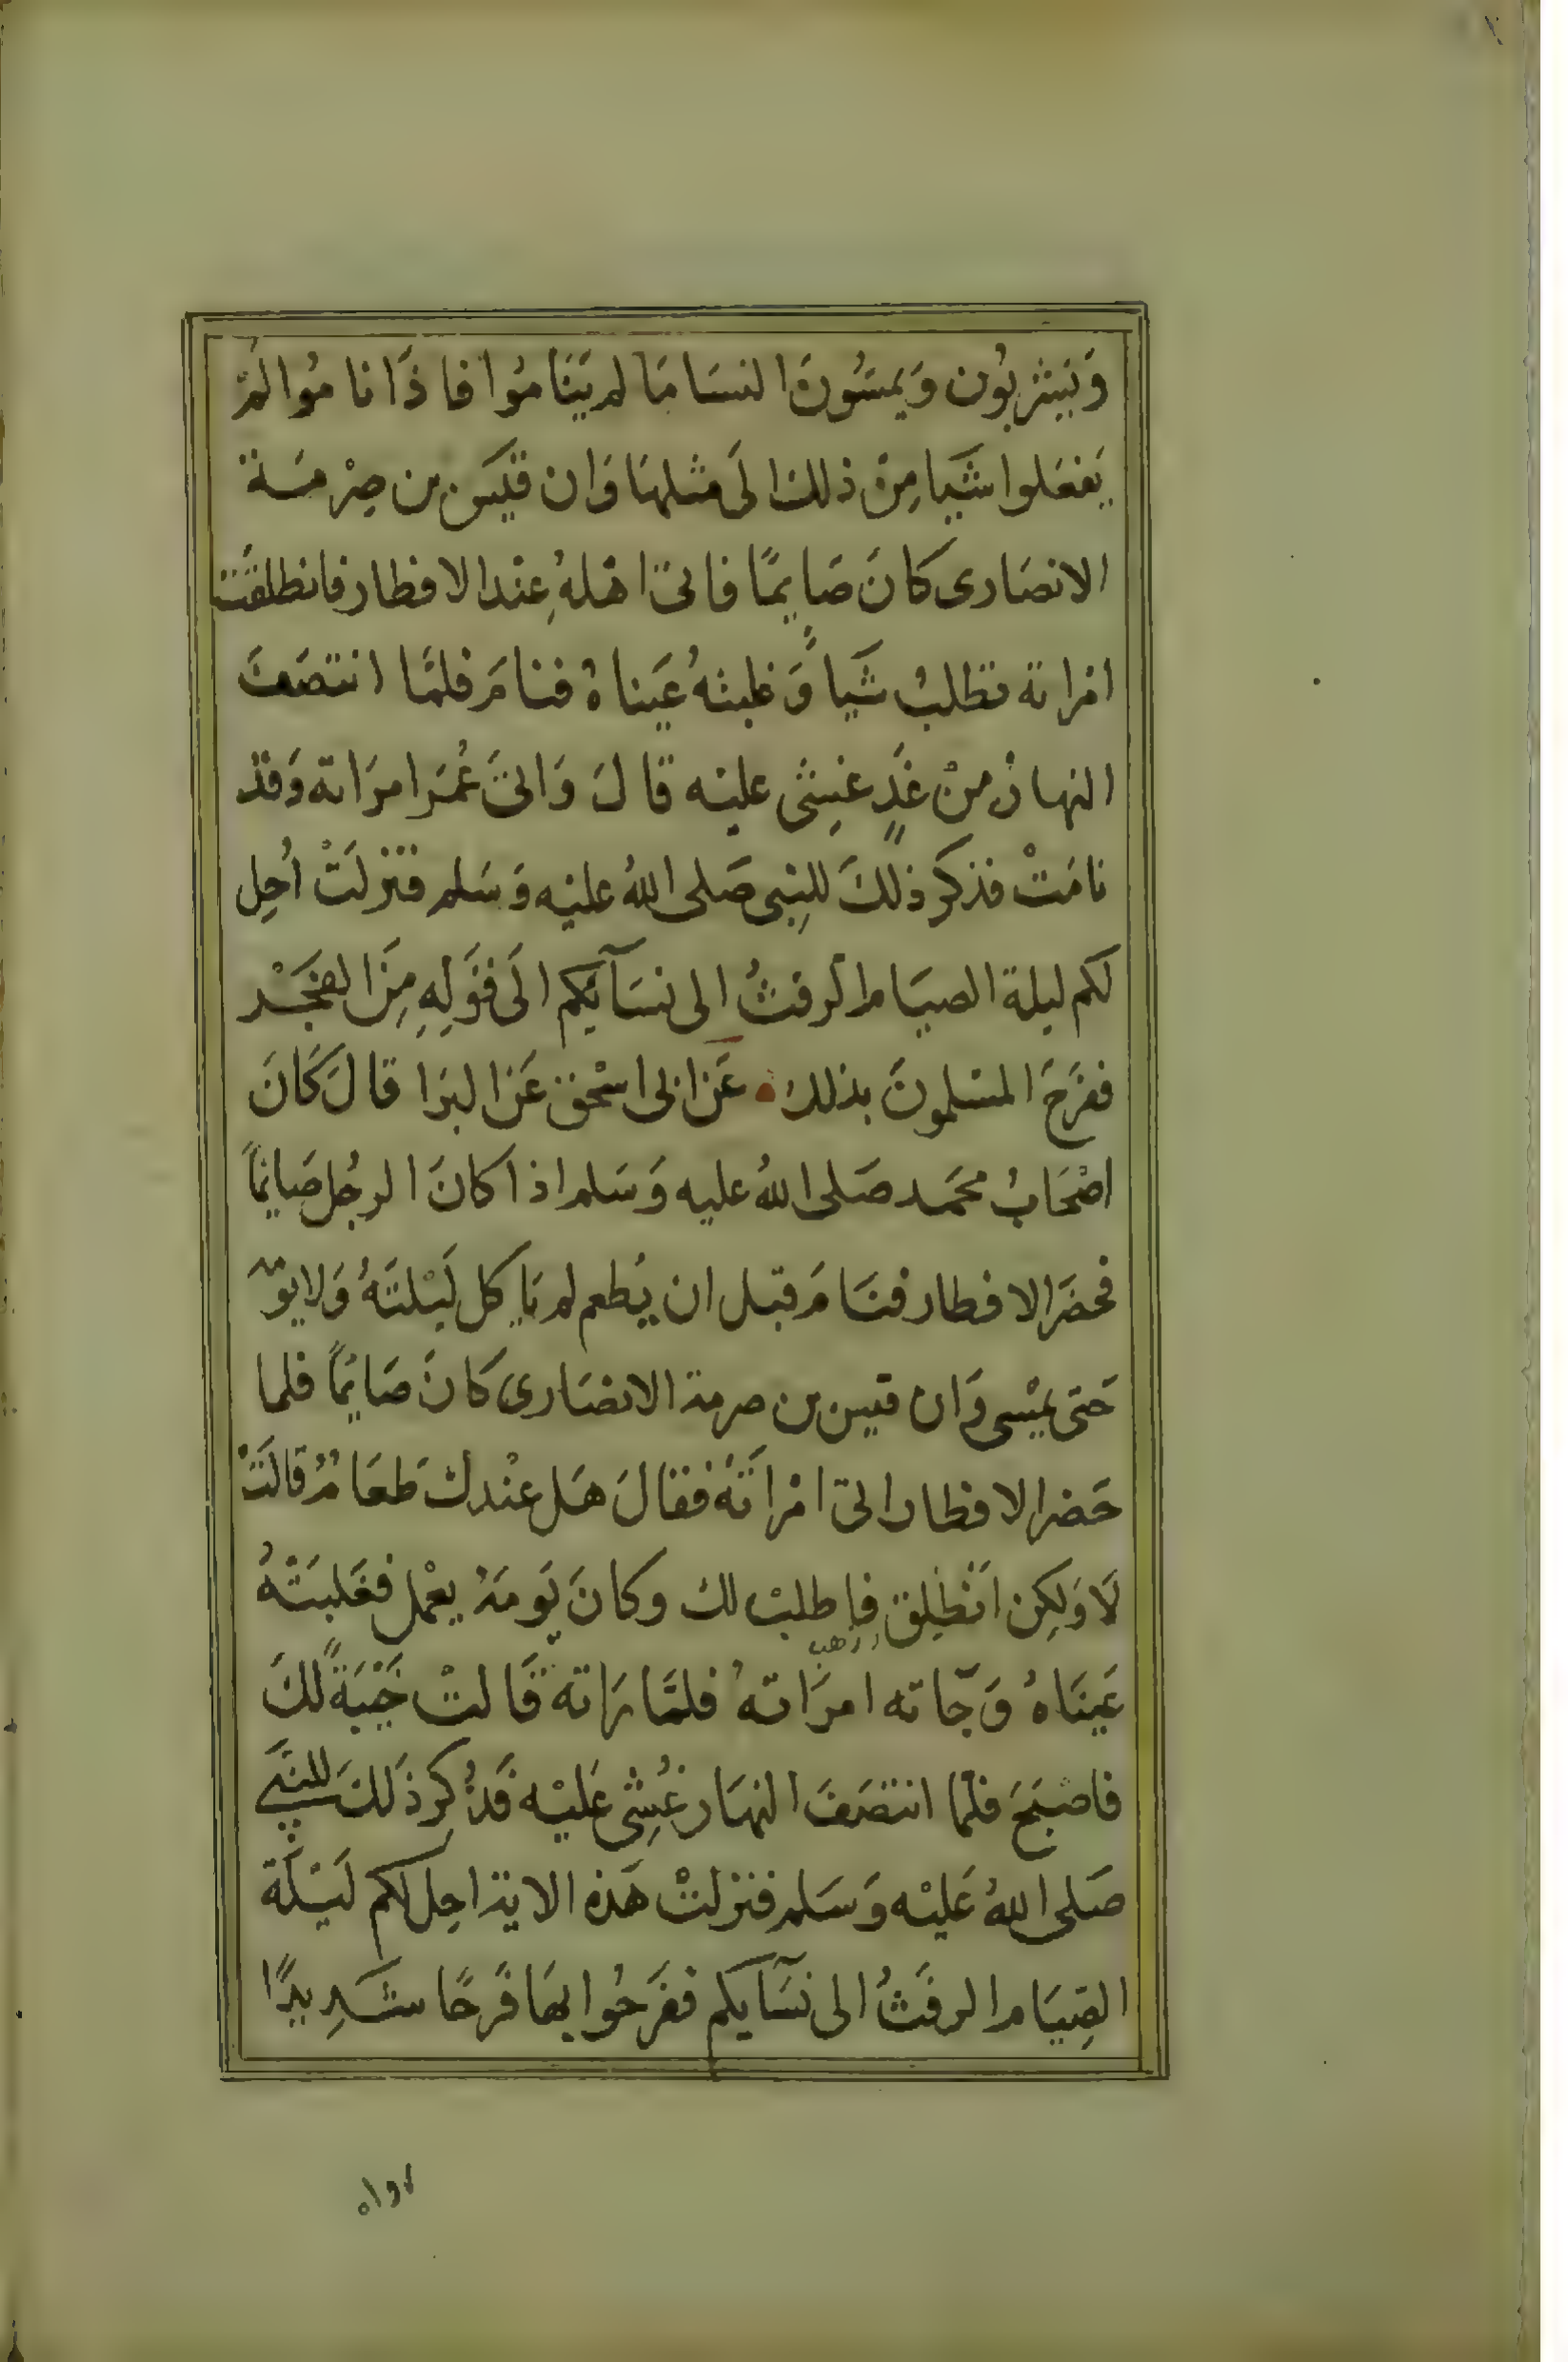 وَيَشربُون وَيمسُونَ النسَا مَا لم يَنَامُوا فاذَا نامُوا لمْ
يَفعَلوا شَيا مِنْ ذلكَ الَى مثلهَا وَان قيَس بن صِرْمَة
الانصَارى كانَ صَايمًا فاتىَ اهْلهُ عِنْد الافطار فانطلقَت
امْراته تطلبُ شَياً وَغلبتهُ عَيناهُ فنامَ فلمَّا انتصَفَ
النهارُ منْ غَدٍ غشِىَ عليْه قالَ وَاتىَ عُمَر امرَاته وَقدْ
نامَتْ فذكر ذلكَ للنبِى صَلى اللهُ عليْه وَسَلم فنزلَتْ أحِل
لكم ليلة الصيَام الرفثُ الى نسَآيكم الَى قَوَلِهِ مِنَ الفجَْر
ففَرحَ المسْلمونَ بذلك عَن ابى اسْحق عَن البرَا قالَ كَانَ
اصْحَابُ محمَد صَلى اللهُ عليه وَسَلم اذا كانَ الرجُل صَايمًا
فحضَر الافطار فنَامَ قبل ان يُطعم لم يَاكل ليْلتَهُ وَلا يومه
حَتى يمْسى وَان قيس بن صرمة الانصَارى كانَ صَايمًا فلما
حَضر الافطار اتى امْراتَهُ فقالَ هَل عنْدك طَعَامُ قالَتْ
لَا وَلكِن انْطلِق فاطلبْ لك وكانَ يَومَهُ يعْمل فغَلبَتْهُ
عَينَاهُ وَجَاته امرَاتهُ فلمَّا رَاته قَالتْ خَيْبَةً لكَ
فاصْبَحَ فلمَّا انتصَفَ النهَار غُشِى عَليْه فَذُكِر ذَلكَ للنبَى
صَلى اللهُ عَليْه وَسَلم فنزلتْ هَذه الاية احِل لكم لَيْلَة
الصِيَام الرفَثُ الى نسَآيكم ففَرحُوا بهَا فَرحًا شَدِيدًا